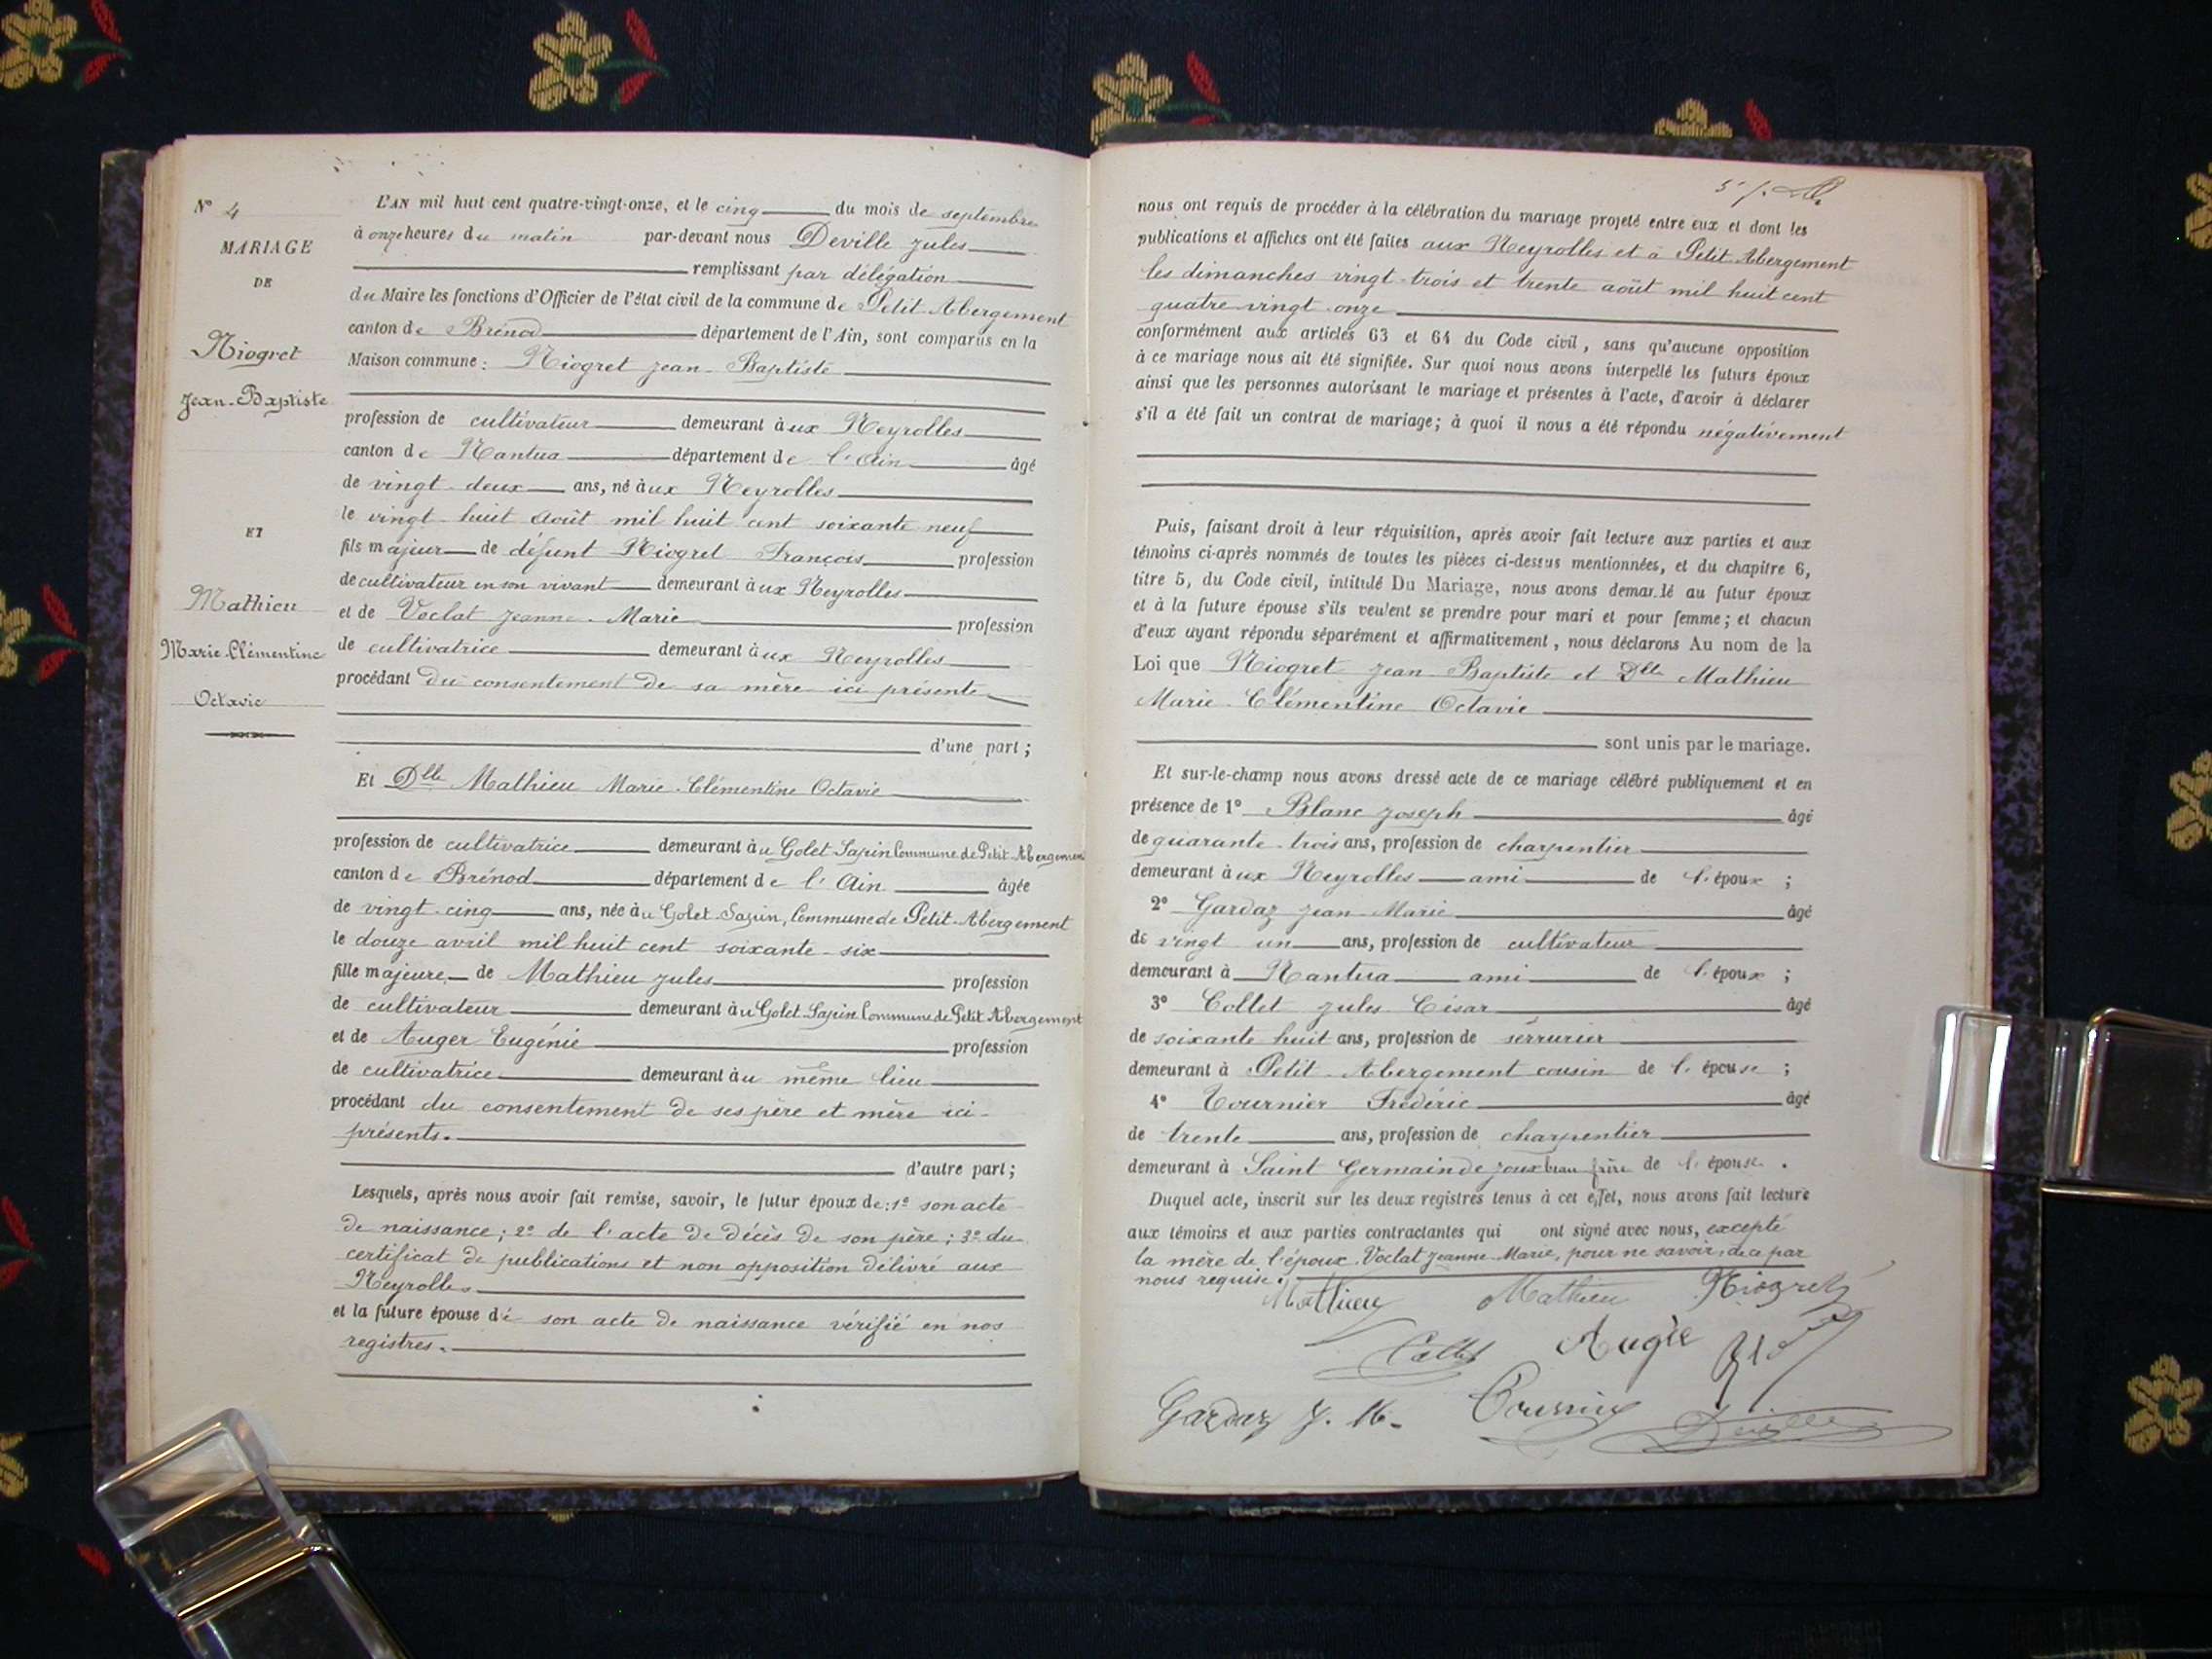 N° 4
MARIAGE
DE
Niogret
Jean-Baptiste
ET
Mathieu
Marie-Clémentine
Octavie
L'AN mil huit cent quatre-vingt-onze, et le cinq du mois de septembre
à onze heures du matin par-devant nous Deville Jules
remplissant par délégation
du Maire les fonctions d'Officier de l'état civil de la commune de Petit-Abergement
canton de Brénod département de l'Ain, sont comparus en la
Maison commune : Niogret Jean-Baptiste
profession de cultivateur demeurant à ux Neyrolles
canton de Nantua département de l'Ain âgé
de vingt-deux ans, né à ux Neyrolles
le vingt-huit août mil huit cent soixante neuf
fils majeur de défunt Niogret François profession
de cultivateur en son vivant demeurant à ux Neyrolles
et de Voclat Jeanne-Marie profession
de cultivatrice demeurant à ux Neyrolles
procédant du consentement de sa mère ici présente
d'une part ;
Et Dlle Mathieu Marie-Clémentine Octavie
profession de cultivatrice demeurant à u Golet-Sapin Commune de Petit-Abergement
canton de Brénod département de l'Ain âgée
de vingt-cinq ans, née à u Golet-Sapin, Commune de Petit-Abergement
le douze avril mil huit cent soixante-six
fille majeure de Mathieu Jules profession
de cultivateur demeurant à u Golet-Sapin Commune de Petit Abergement
et de Auger Eugénie profession
de cultivatrice demeurant à u même lieu
procédant du consentement de ses père et mère ici-
présents.
d'autre part ;
Lesquels, après nous avoir fait remise, savoir, le futur époux de : 1° son acte
de naissance ; 2° de l'acte de décès de son père ; 3° du
certificat de publications et non opposition délivré aux
Neyrolles
et la future épouse de son acte de naissance vérifié en nos
registres.
nous ont requis de procéder à la célébration du mariage projeté entre eux et dont les
publications et affiches ont été faites aux Neyrolles et à Petit-Abergement
les dimanches vingt-trois et trente août mil huit cent
quatre-vingt-onze
conformément aux articles 63 et 64 du Code civil, sans qu'aucune opposition
à ce mariage nous ait été signifiée. Sur quoi nous avons interpellé les futurs époux
ainsi que les personnes autorisant le mariage et présentes à l'acte, d'avoir à déclarer
s'il a été fait un contrat de mariage ; à quoi il nous a été répondu négativement
Puis, faisant droit à leur réquisition, après avoir fait lecture aux parties et aux
témoins ci-après nommés de toutes les pièces ci-dessus mentionnées, et du chapitre 6,
titre 5, du Code civil, intitulé Du Mariage, nous avons demandé au futur époux
et à la future épouse s'ils veulent se prendre pour mari et pour femme ; et chacun
d'eux ayant répondu séparément et affirmativement, nous déclarons Au nom de la
Loi que Niogret Jean-Baptiste et Dlle Mathieu
Marie-Clémentine Octavie
sont unis par le mariage.
Et sur-le-champ nous avons dressé acte de ce mariage célébré publiquement et en
présence de 1° Blanc Joseph âgé
de quarante-trois ans, profession de charpentier
demeurant à ux Neyrolles ami de l'époux ;
2° Gardaz Jean-Marie âgé
de vingt un ans, profession de cultivateur
demeurant à Nantua ami de l'époux ;
3° Collet Jules César âgé
de soixante huit ans, profession de serrurier
demeurant à Petit-Abergement cousin de l'épouse ;
4° Tournier Frédéric âgé
de trente ans, profession de charpentier
demeurant à Saint Germain de Joux beau frère de l'épouse.
Duquel acte, inscrit sur les deux registres tenus à cet effet, nous avons fait lecture
aux témoins et aux parties contractantes qui ont signé avec nous, excepté
la mère de l'époux Voclat Jeanne-Marie, pour ne savoir, de ce par
nous requise.
Mathieu Mathieu Niogret
Collet Augée
Gardaz J. M. Tournier Deville